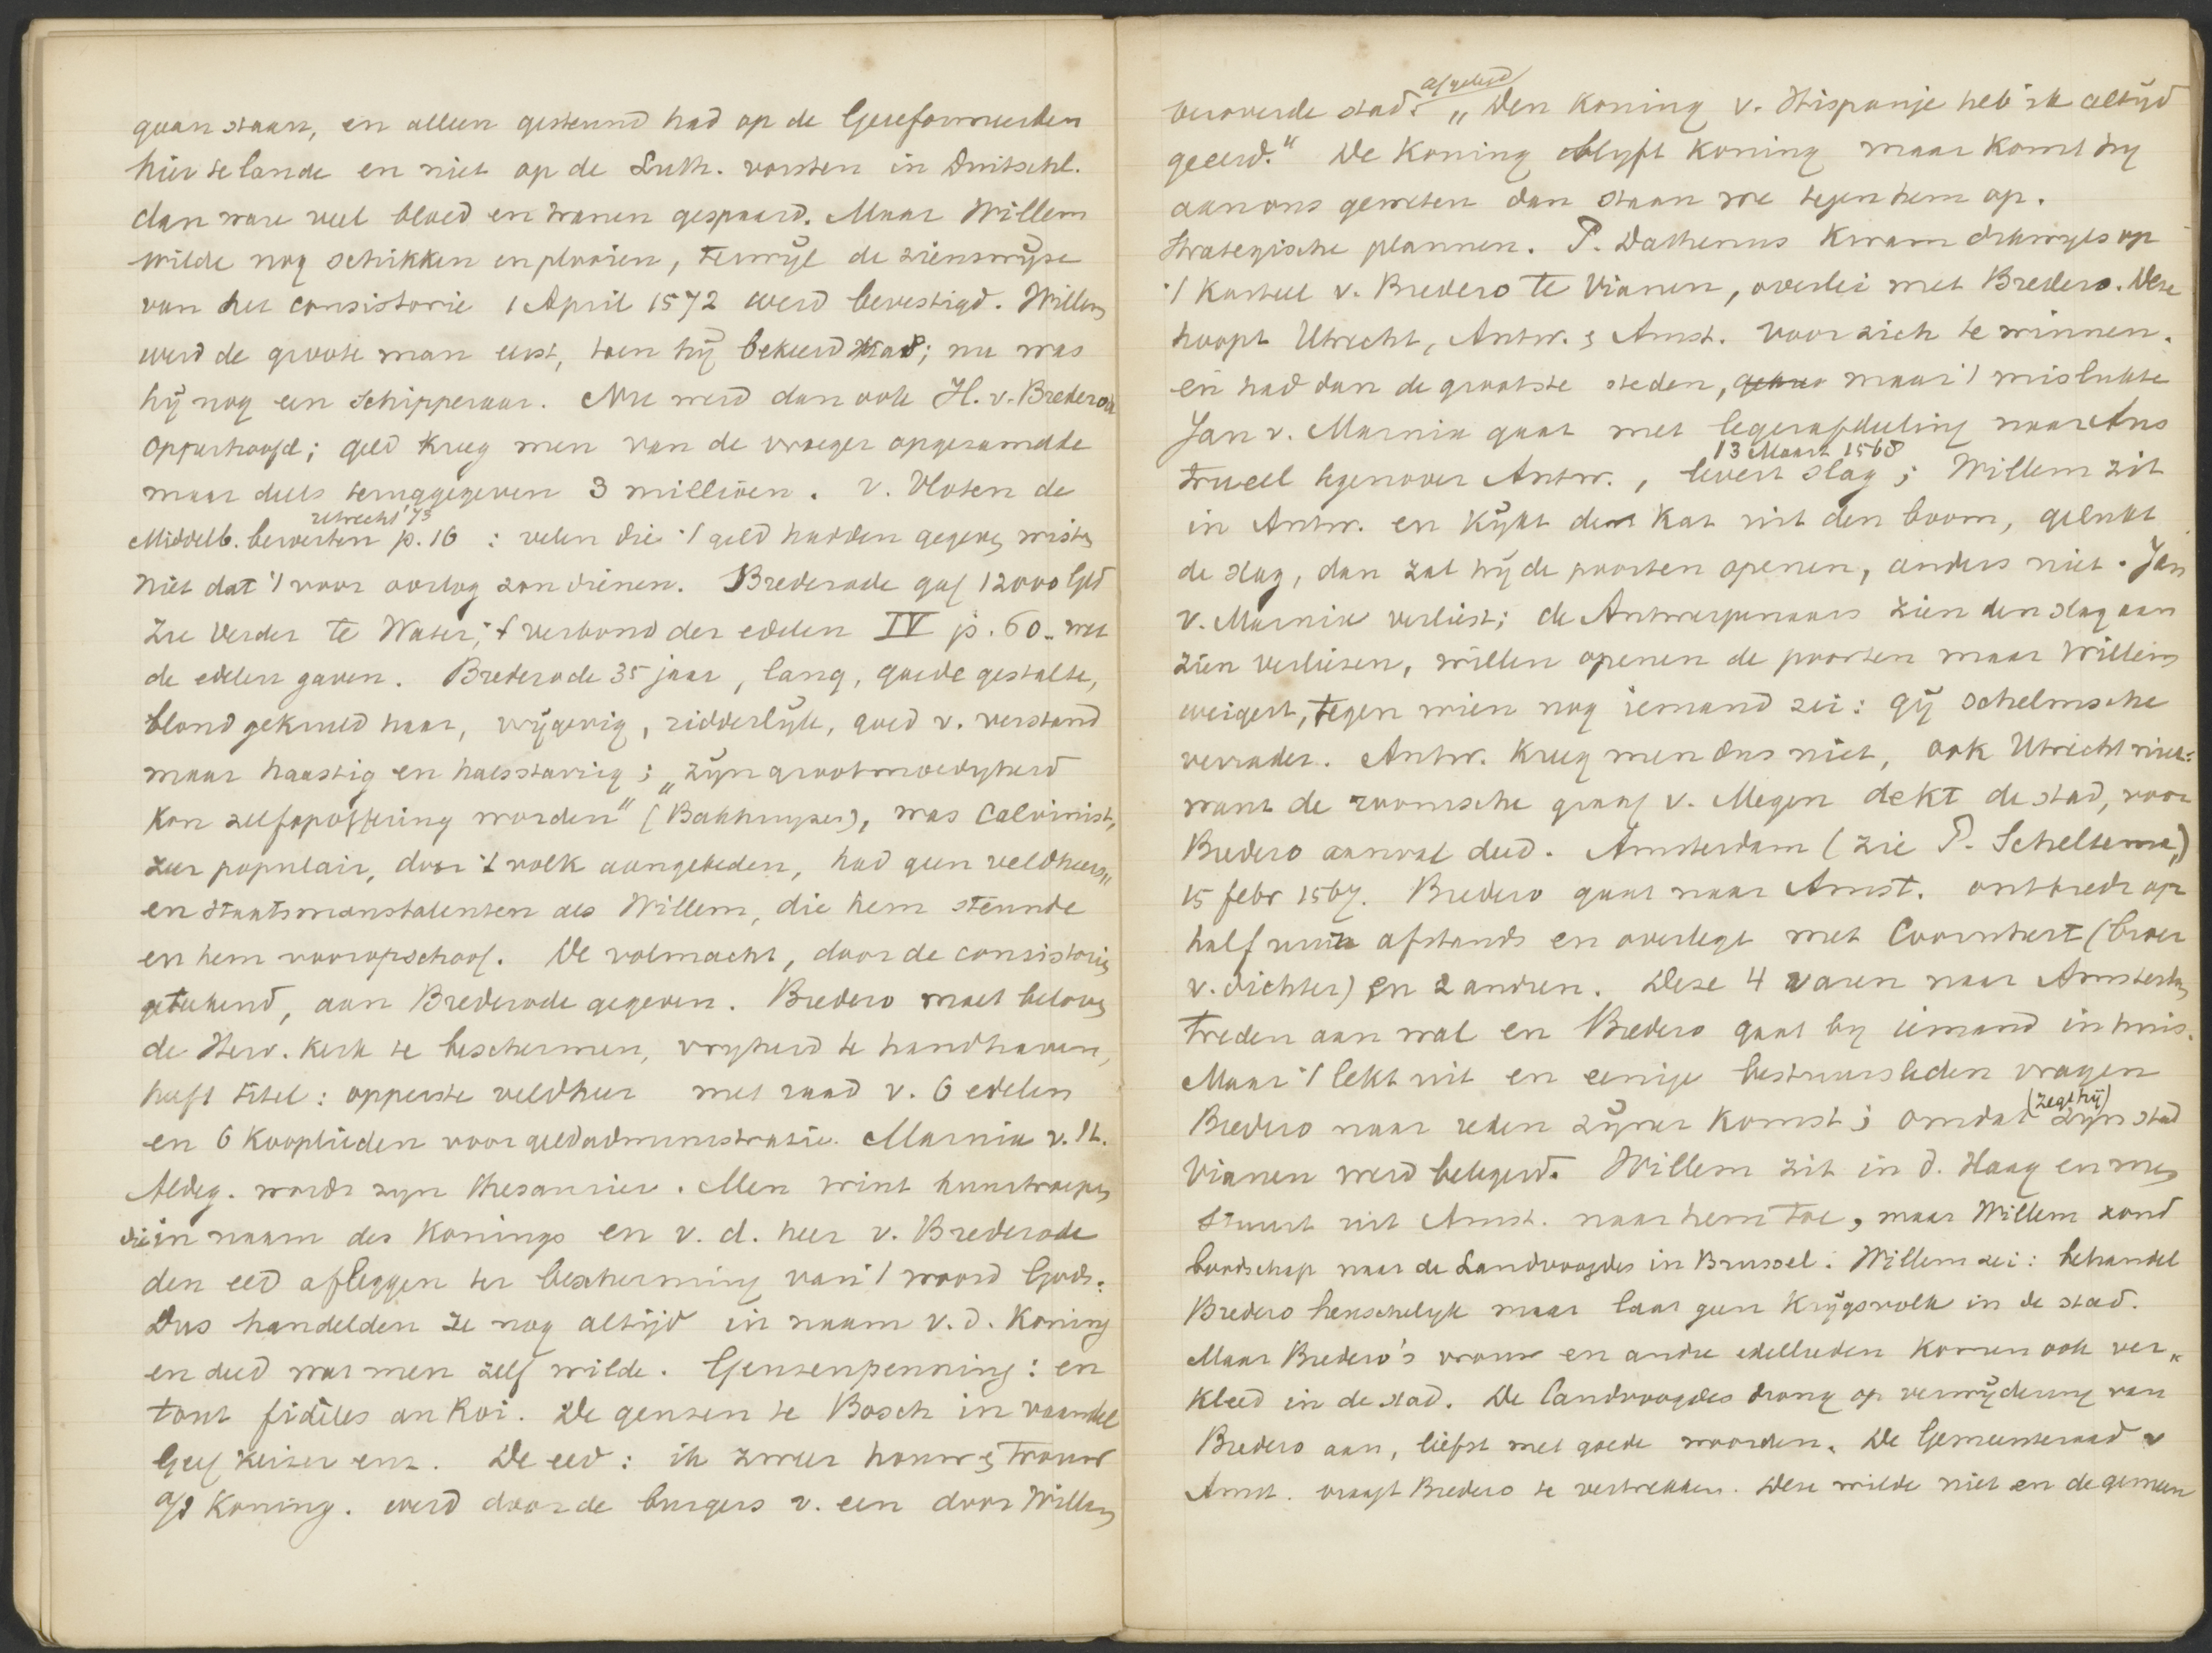 gaan staan, en alleen gesteund had op de Gereformeerden
hier te lande en niet op de Luth. vorsten in Duitschl.
dan ware veel bloed en tranen gespaard. Maar Willem
wilde nog schikken en plooien, terwijl de zienswijze
van het consistorie 1 April 1572 werd bevestigd. Willem
werd de groote man eerst, toen hij bekeerd was; nu was
hij nog een schipperaar. Nu werd dan ook H. v. Brederode
opperhoofd; geld kreeg men van de vroeger opgezamelde
maar deels teruggegeven 3 millioen. v. Vloten de
Utrecht '73
Middelb. beroerten p. 16 : velen die 't geld hadden gegeven wisten
niet dat 't voor oorlog zou dienen. Brederode gaf 12000 Gld
Zie verder te Water; 't verbond der edelen IV p. 60. wat
de edelen gaven. Brederode 35 jaar, lang, goede gestalte,
blond gekruld haar, vrijgevig, ridderlijk, goed v. verstand
maar haastig en halsstarrig; „zijn grootmoedigheid
kon zelfopoffering worden" (Bakhuyzen), was Calvinist,
zeer populair, door 't volk aangebeden, had geen veldheers„
en staatsmanstalenten als Willem, die hem steunde
en hem vooropschoof. De volmacht, door de consistoriën
geteekend, aan Brederode gegeven. Bredero moet beloven
de Herv. Kerk te beschermen, vrijheid te handhaven,
heeft titel: opperste veldheer met raad v. 6 edelen
en 6 kooplieden voor geldadministratie. Marnix v. St.
Aldeg. wordt zyn thesaurier. Men wint huurtroepen
die in naam des Konings en v. d. heer v. Brederode
den eed afleggen ter bescherming van 't woord Gods.
Dus handelden ze nog altijd in naam v. d. Koning
en deed wat men zelf wilde. Geusenpenning: en
tout fidèles au Roi. De geusen te Bosch in vaandel
Geef keizer enz. De eed: ik zweer houw & trouw
a/d Koning. werd door de burgers v. een door Willem
afgelegd
veroverde stad. „Den Koning v. Hispanje heb ik altijd
geëerd." De Koning blyft Koning maar komt hy
aan ons geweten dan staan we tegen hem op.
Strategische plannen. P. Dathenus kwam dikwyls op
't Kasteel v. Bredero te Vianen, overlei met Bredero. Deze
hoopt Utrecht, Antw. & Amst. voor zich te winnen.
en had dan de grootste steden, maar 't mislukte
Jan v. Marnix gaat met legerafdeeling naar Aus
13 Maart 1568
truweel tegenover Antw., levert slag; Willem zit
in Antw. en kykt de kat uit den boom, gelukt
de slag, dan zal hij de poorten openen, anders niet. Jan
v. Marnix verliest; de Antwerpenaars zien den slag aan
zien verliezen, willen openen de poorten maar Willem
weigert, tegen wien nog iemand zei: gij schelmsche
verrader. Antw. kreeg men dus niet, ook Utrecht niet:
want de roomsche graaf v. Megen dekt de stad, voor
Bredero aanval deed. Amsterdam (zie P. Scheltema,)
15 febr 1567. Bredero gaat naar Amst. ontbiedt op
half uur afstands en overlegt met Coornhert (broer
v. dichter) en 2 andren. Deze 4 varen naar Amsterdam
treden aan wal en Bredero gaat by iemand in huis.
Maar 't lekt uit en eenige bestuursleden vragen
(zegt hij)
Bredero naar reden zijner komst; omdat zijn stad
Vianen werd belegerd. Willem zit in d. Haag en men
stuurt uit Amst. naar hem toe, maar Willem zond
boodschap naar de Landvoogdes in Brussel. Willem zei: behandel
Bredero heuschelyk maar laat geen krijgsvolk in de stad.
Maar Bredero's vrouw en andre edellieden komen ook ver„
kleed in de stad. De landvoogdes drong op verwijdering van
Bredero aan, liefst met goede woorden. De Gemeenteraad v
Amst. vraagt Bredero te vertrekken. Deze wilde niet en de gemeen